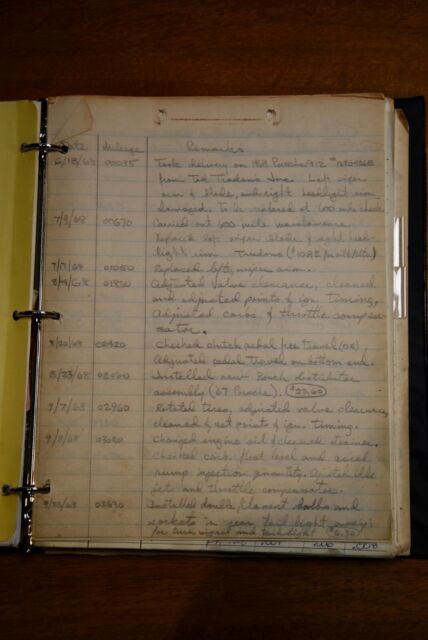 Date Mileage Remarks
6/18/68 00035 Took delivery on 1968 Porsche 912
from Ted Trudon's Inc. Left wiper
arm & blade, and right headlight rim
damaged. To be replaced at 600 mile check.
7/9/68 00670 Carried out 600 mile maintenance.
Replaced left wiper blade & right head-
light rim. Trudons
7/17/68 01050 Replaced left wiper arm.
Adjusted valve clearance, cleaned
and adjusted points & ign. timing,
Adjusted carbs & throttle compen-
sator.
8/20/68 02420 Checked clutch pedal free travel (OK),
Adjusted pedal travel on bottom end.
8/23/68 02500 Installed new Bosch distributor
assembly (67 Porsche).
9/7/68 02960 Rotated tires, adjusted valve clearance,
cleaned & set points & ign. timing.
9/8/68 03050 Changed engine oil & cleaned strainer.
Checked carb. float level and accel
pump injection quantity. Adjusted idle
jets and throttle compensator.
03630 Installed double filament bulbs and
sockets in rear tail light
for turn signal and tail light